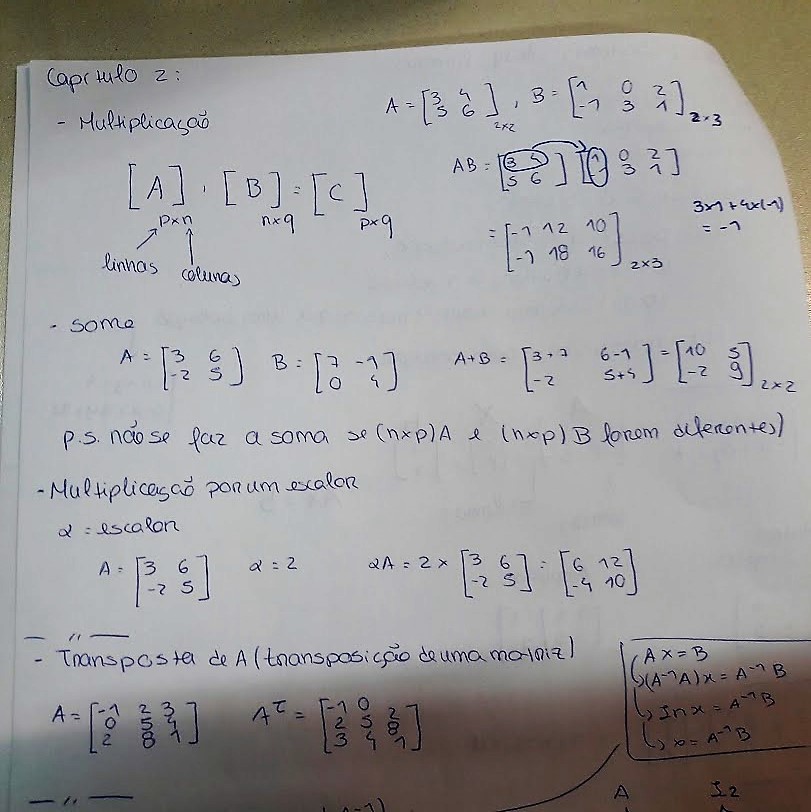 Capítulo 2:
- Multiplicação
A = [3 4 5 6] 2x2 , B = [1 0 2 -1 3 1] 2x3
[A] . [B] = [C]
pxn nxq pxq
linhas colunas
AB = [3 4 5 6] [1 -1 0 3 2 1]
3x1+4x(-1)
= -1
= [-1 12 10 -1 18 16] 2x3
- soma
A = [3 6 -2 5] B = [7 -1 0 4] A+B = [3+7 6-1 -2 5+4] = [10 5 -2 9] 2x2
p.s. não se faz a soma se (nxp)A e (nxp)B forem diferentes)
- Multiplicação por um escalar
α = escalar
A = [3 6 -2 5] α = 2 αA = 2 x [3 6 -2 5] = [6 12 -4 10]
— " —
- Transposta de A (transposição de uma matriz)
A = [-1 2 3 0 5 4 2 8 1] Aᵀ = [-1 0 2 2 5 8 3 4 1]
Ax = B
↳ (A⁻¹A)x = A⁻¹B
↳ Inx = A⁻¹B
↳ x = A⁻¹B
— " —
A I2